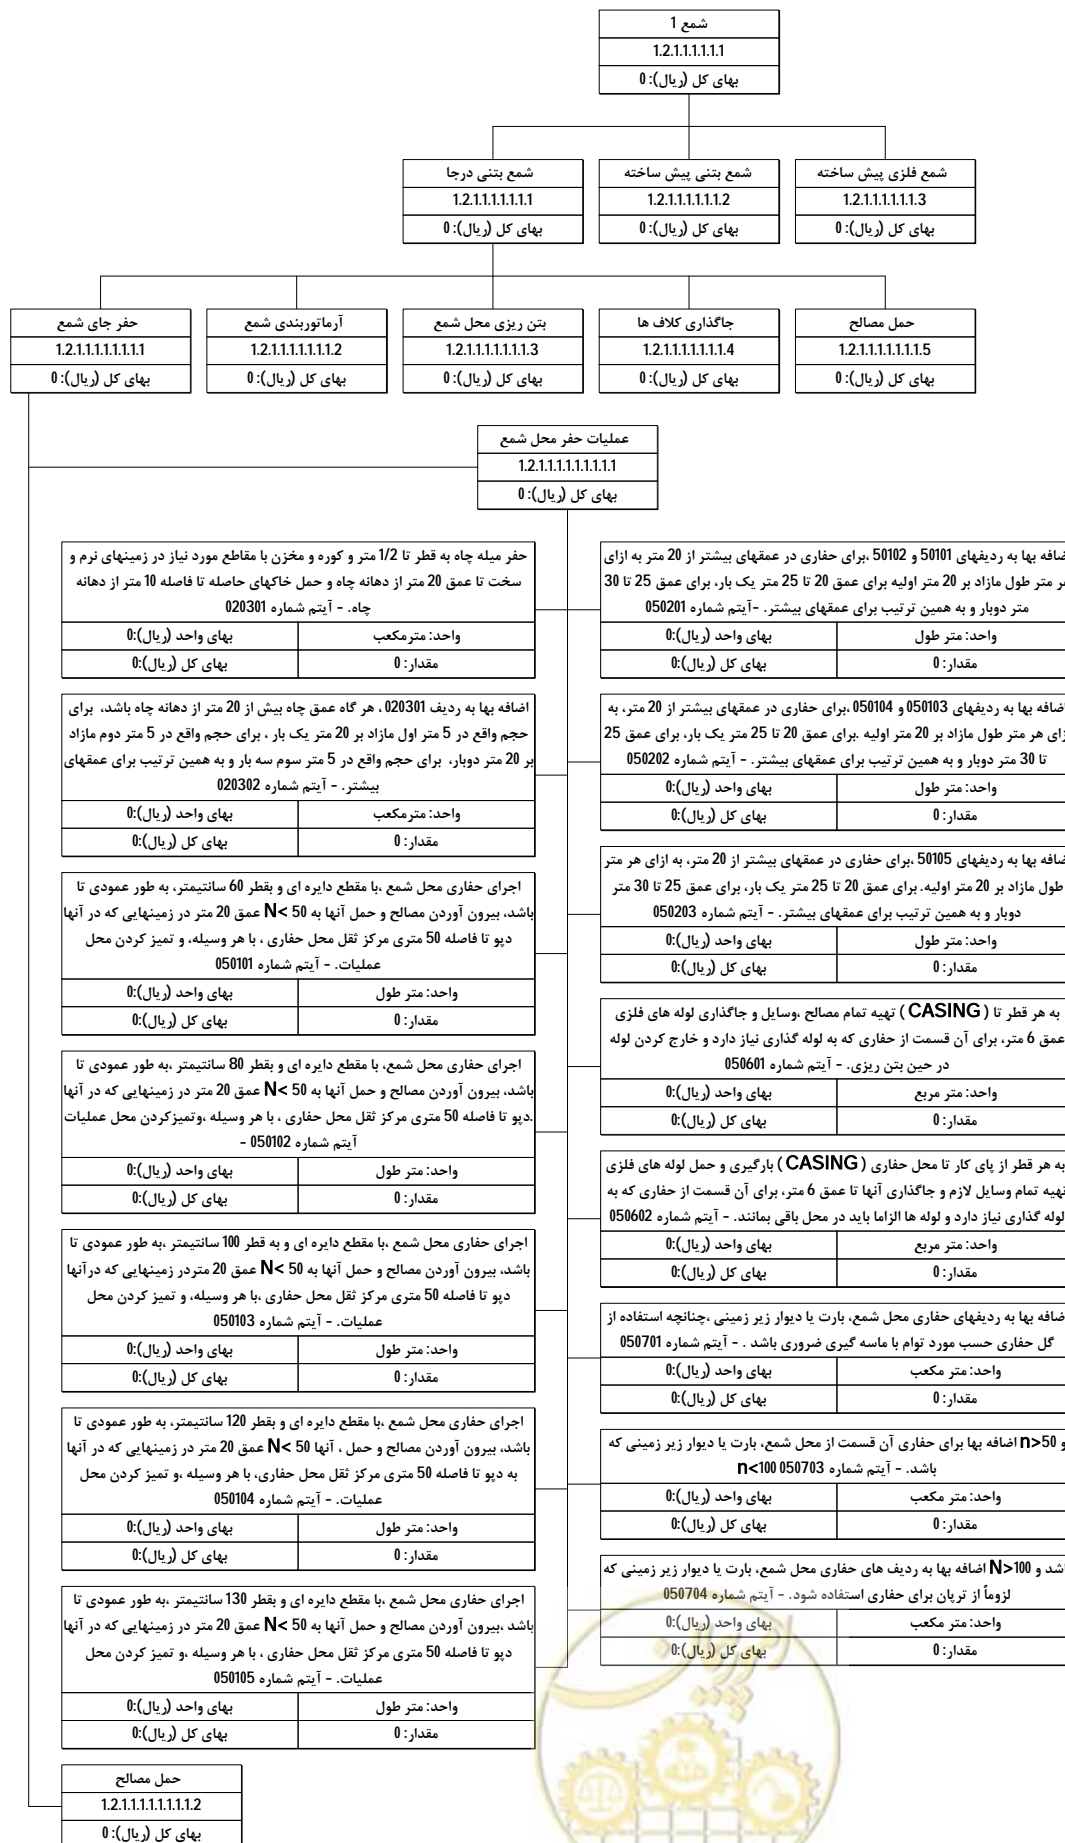 شمع 1
1.2.1.1.1.1.1.1
بهای کل (ریال): 0
شمع بتنی درجا
1.2.1.1.1.1.1.1.1
بهای کل (ریال): 0
شمع بتنی پیش ساخته
1.2.1.1.1.1.1.1.2
بهای کل (ریال): 0
شمع فلزی پیش ساخته
1.2.1.1.1.1.1.1.3
بهای کل (ریال): 0
حفر جای شمع
1.2.1.1.1.1.1.1.1.1
بهای کل (ریال): 0
آرماتوربندی شمع
1.2.1.1.1.1.1.1.1.2
بهای کل (ریال): 0
بتن ریزی محل شمع
1.2.1.1.1.1.1.1.1.3
بهای کل (ریال): 0
جاگذاری کلاف ها
1.2.1.1.1.1.1.1.1.4
بهای کل (ریال): 0
حمل مصالح
1.2.1.1.1.1.1.1.1.5
بهای کل (ریال): 0
عملیات حفر محل شمع
1.2.1.1.1.1.1.1.1.1.1
بهای کل (ریال): 0
حفر میله چاه به قطر تا 1/2 متر و کوره و مخزن با مقاطع مورد نیاز در زمینهای نرم و
سخت تا عمق 20 متر از دهانه چاه و حمل خاکهای حاصله تا فاصله 10 متر از دهانه
چاه. - آیتم شماره 020301
واحد: مترمکعب
بهای واحد (ریال):0
مقدار: 0
بهای کل (ریال):0
اضافه بها به ردیف 020301 ، هر گاه عمق چاه بیش از 20 متر از دهانه چاه باشد، برای
حجم واقع در 5 متر اول مازاد بر 20 متر یک بار ، برای حجم واقع در 5 متر دوم مازاد
بر 20 متر دوبار، برای حجم واقع در 5 متر سوم سه بار و به همین ترتیب برای عمقهای
بیشتر. - آیتم شماره 020302
واحد: مترمکعب
بهای واحد (ریال):0
مقدار: 0
بهای کل (ریال):0
اجرای حفاری محل شمع ،با مقطع دایره ای و بقطر 60 سانتیمتر، به طور عمودی تا
باشد، بیرون آوردن مصالح و حمل آنها به N< 50 عمق 20 متر در زمینهایی که در آنها
دپو تا فاصله 50 متری مرکز ثقل محل حفاری ، با هر وسیله، و تمیز کردن محل
عملیات. - آیتم شماره 050101
واحد: متر طول
بهای واحد (ریال):0
مقدار: 0
بهای کل (ریال):0
اجرای حفاری محل شمع، با مقطع دایره ای و بقطر 80 سانتیمتر ،به طور عمودی تا
باشد، بیرون آوردن مصالح و حمل آنها به N< 50 عمق 20 متر در زمینهایی که در آنها
.دپو تا فاصله 50 متری مرکز ثقل محل حفاری ، با هر وسیله ،وتمیزکردن محل عملیات
آیتم شماره 050102 -
واحد: متر طول
بهای واحد (ریال):0
مقدار: 0
بهای کل (ریال):0
اجرای حفاری محل شمع ،با مقطع دایره ای و به قطر 100 سانتیمتر ،به طور عمودی تا
باشد، بیرون آوردن مصالح و حمل آنها به N< 50 عمق 20 متردر زمینهایی که درآنها
دپو تا فاصله 50 متری مرکز ثقل محل حفاری ،با هر وسیله، و تمیز کردن محل
عملیات. - آیتم شماره 050103
واحد: متر طول
بهای واحد (ریال):0
مقدار: 0
بهای کل (ریال):0
اجرای حفاری محل شمع ،با مقطع دایره ای و بقطر 120 سانتیمتر، به طور عمودی تا
باشد، بیرون آوردن مصالح و حمل ، آنها N< 50 عمق 20 متر در زمینهایی که در آنها
به دپو تا فاصله 50 متری مرکز ثقل محل حفاری، با هر وسیله ،و تمیز کردن محل
عملیات. - آیتم شماره 050104
واحد: متر طول
بهای واحد (ریال):0
مقدار: 0
بهای کل (ریال):0
اجرای حفاری محل شمع ،با مقطع دایره ای و بقطر 130 سانتیمتر ،به طور عمودی تا
باشد ،بیرون آوردن مصالح و حمل آنها به N< 50 عمق 20 متر در زمینهایی که در آنها
دپو تا فاصله 50 متری مرکز ثقل محل حفاری ، با هر وسیله ،و تمیز کردن محل
عملیات. - آیتم شماره 050105
واحد: متر طول
بهای واحد (ریال):0
مقدار: 0
بهای کل (ریال):0
ضافه بها به ردیفهای 50101 و 50102 ،برای حفاری در عمقهای بیشتر از 20 متر به ازای
هر متر طول مازاد بر 20 متر اولیه برای عمق 20 تا 25 متر یک بار، برای عمق 25 تا 30
متر دوبار و به همین ترتیب برای عمقهای بیشتر. -آیتم شماره 050201
واحد: متر طول
بهای واحد (ریال):0
مقدار: 0
بهای کل (ریال):0
اضافه بها به ردیفهای 050103 و 050104 ،برای حفاری در عمقهای بیشتر از 20 متر، به
زای هر متر طول مازاد بر 20 متر اولیه .برای عمق 20 تا 25 متر یک بار، برای عمق 25
تا 30 متر دوبار و به همین ترتیب برای عمقهای بیشتر. - آیتم شماره 050202
واحد: متر طول
بهای واحد (ریال):0
مقدار: 0
بهای کل (ریال):0
ضافه بها به ردیفهای 50105 ،برای حفاری در عمقهای بیشتر از 20 متر، به ازای هر متر
طول مازاد بر 20 متر اولیه. برای عمق 20 تا 25 متر یک بار، برای عمق 25 تا 30 متر
دوبار و به همین ترتیب برای عمقهای بیشتر. - آیتم شماره 050203
واحد: متر طول
بهای واحد (ریال):0
مقدار: 0
بهای کل (ریال):0
به هر قطر تا ( CASING ) تهیه تمام مصالح ،وسایل و جاگذاری لوله های فلزی
عمق 6 متر، برای آن قسمت از حفاری که به لوله گذاری نیاز دارد و خارج کردن لوله
در حین بتن ریزی. - آیتم شماره 050601
واحد: متر مربع
بهای واحد (ریال):0
مقدار: 0
بهای کل (ریال):0
به هر قطر از پای کار تا محل حفاری ( CASING ) بارگیری و حمل لوله های فلزی
تهیه تمام وسایل لازم و جاگذاری آنها تا عمق 6 متر، برای آن قسمت از حفاری که به
لوله گذاری نیاز دارد و لوله ها الزاما باید در محل باقی بمانند. - آیتم شماره 050602
واحد: متر مربع
بهای واحد (ریال):0
مقدار: 0
بهای کل (ریال):0
ضافه بها به ردیفهای حفاری محل شمع، بارت یا دیوار زیر زمینی ،چنانچه استفاده از
گل حفاری حسب مورد توام با ماسه گیری ضروری باشد . - آیتم شماره 050701
واحد: متر مکعب
بهای واحد (ریال):0
مقدار: 0
بهای کل (ریال):0
و n>50 اضافه بها برای حفاری آن قسمت از محل شمع، بارت یا دیوار زیر زمینی که
باشد. - آیتم شماره 050703 n<100
واحد: متر مکعب
بهای واحد (ریال):0
مقدار: 0
بهای کل (ریال):0
اشد و N>100 اضافه بها به ردیف های حفاری محل شمع، بارت یا دیوار زیر زمینی که
لزوماً از ترپان برای حفاری استفاده شود. - آیتم شماره 050704
واحد: متر مکعب
بهای واحد (ریال):0
مقدار: 0
بهای کل (ریال):0
حمل مصالح
1.2.1.1.1.1.1.1.1.1.2
بهای کل (ریال): 0